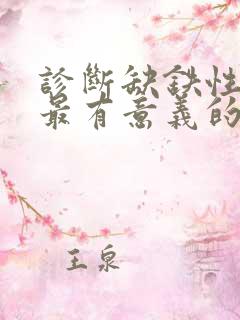 診斷缺鉄性
最有意義的
王泉